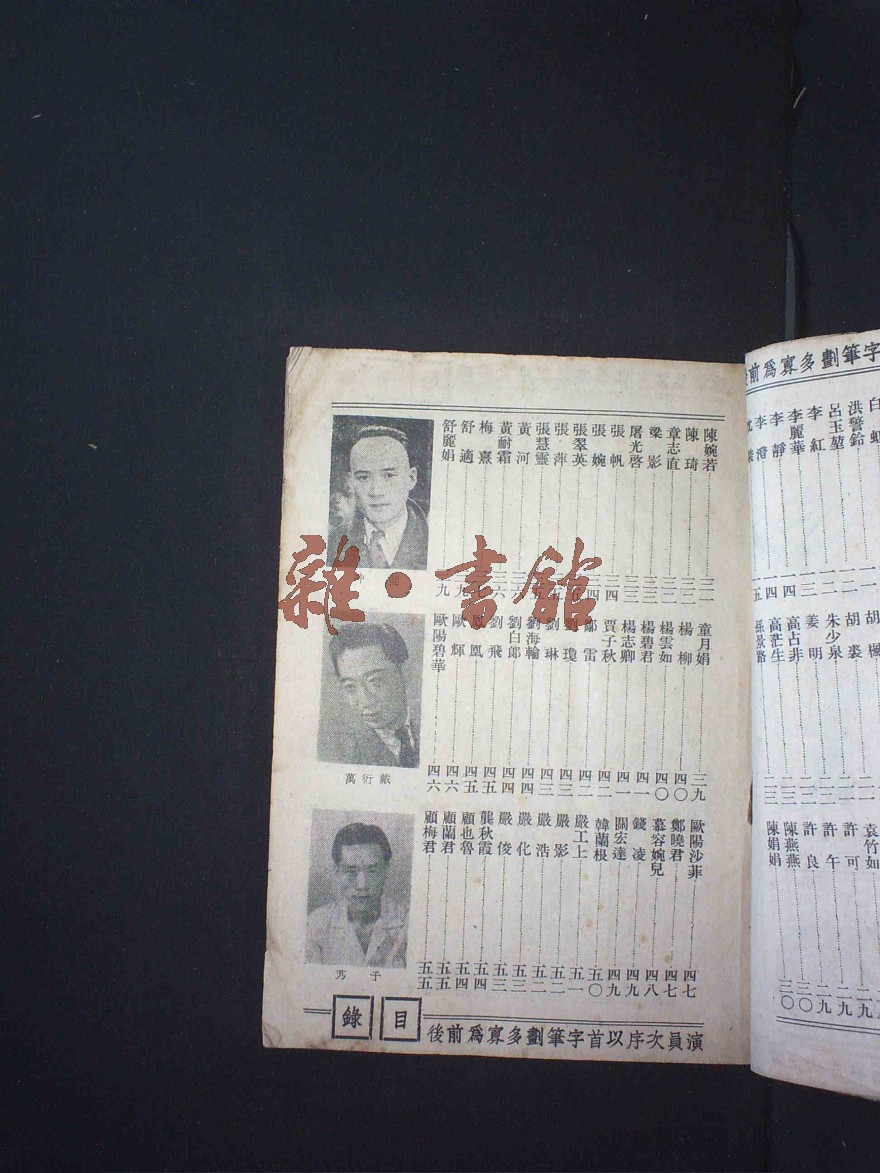 字筆劃多寡爲前
洪警鈴
呂玉堃
李紅
李麗華
李靜
李澄
胡楓
胡裘
朱少泉
姜明
高占非 二二
高茫生 二三
孫景路 二三
袁竹如
許可 二九
許午 二九
許良 二九
陳燕燕 三〇
陳娟娟 三〇
陳婉若 三一
陳琦 三一
章志直 三二
梁影 三二
屠光啓 三三
張帆
張婉
張翠英
張萍
張慧靈
黃河
黃耐霜
梅熹
舒適
舒麗娟
童月娟 三九
楊柳 四〇
楊雲如 四〇
楊碧君 四一
楊志卿 四一
賈子秋 四二
鄒雷 四二
劉瓊 四三
劉琳 四三
劉海輪 四四
劉白郎 四四
劉飛 四五
鳳凰 四五
歐輝 四六
歐陽碧華 四六
歐陽沙菲 四七
鄭曉君 四七
慕容婉兒 四八
錢凌 四九
關宏達 四九
韓蘭根 五〇
嚴工上 五一
嚴影 五二
嚴浩 五二
嚴化 五三
嚴俊 五三
龔秋霞 五四
顧也魯 五四
顧蘭君 五五
顧梅君 五五
戴衍萬
子艿
演員次序以首字筆劃多寡爲前後
目錄
雜·書館